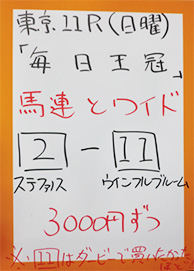 東京11R(日曜)
「毎日王冠」
馬連とワイド
2-11
ステファノス ウインフルブルーム
3000円ずつ
※11はダービーで買いたかった